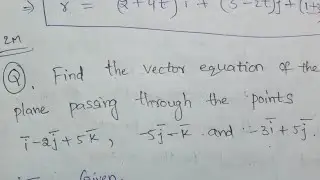 ⇒ r = (2+4t) i + (3-2t) j + (1+
2M
Q. Find the vector equation of the
plane passing through the points
i̅-2j̅+5k̅, -5j̅-k̅ and -3i̅+5j̅.
Given